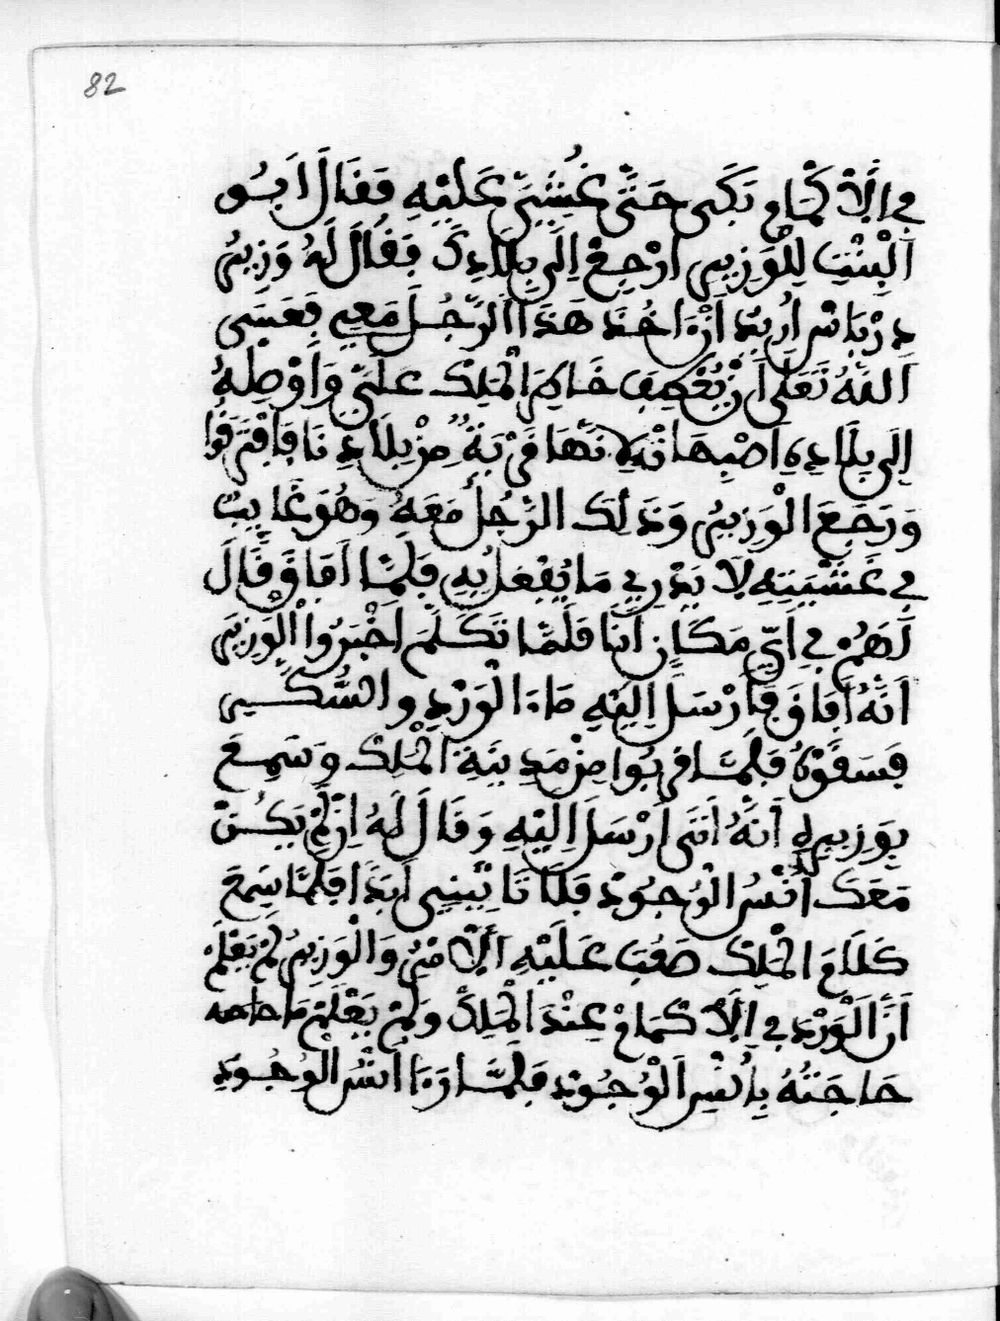 82
في الَاكْمَامِ بَكَى حَتَّى غُشِيَ عَلَيْهِ فَقَالَ اَبُو
الْبِنْتِ لِلْوَزِيرِ ارْجِعْ اِلَى بِلَادِكَ فَقَالَ لَهُ وَزِيرُ
دِرْبَاسْ اُرِيدُ اَنْ ءَاخُذَ هَذَا الرَّجُلَ مَعِي فَعَسَى
اللَّهُ تَعَلَى اَنْ يُعْطِفَ خَاطِرَ الْمَلِكَ عَلَيَّ وَاُوْصِلْهُ
اِلَى بِلَادِهِ اَصْبِهَانَهْ لِاَنَّهَا قَرْيَةٌ مِنْ بِلَادِنَا فَافْتَرَقُوا
وَرَجَعَ الْوَزِيرُ وَذَلِكَ الرَّجُلُ مَعَهُ وَهُوَ غَايِبٌ
فِي غَشْيَتِهِ لَا يَدْرِي مَا يُفْعَلُ بِهِ فَلَمَّا اَفَاقَ قَالَ
لَهُمْ فِي اَيِّ مَكَانٍ اَنَا فَلَمَّا تَكَلَّمَ اَخْبَرُوا الْوَزِيرَ
اَنَّهُ اَفَاقَ فَاَرْسَلَ اِلَيْهِ مَاءَ الْوَرْدِ والسُّكَّرِ
فَسَقَوْهُ فَلَمَّا قربُوا مِنْ مَدِينَةِ الْمَلِكْ وَسَمِعَ
بِوَزِيرِهِ اَنَّهُ اَتَى اَرْسَلَ اِلَيْهِ وَقَالَ لَهُ اِنْ لَمْ يَكُنْ
مَعَكَ اُنْسُ الْوُجُودْ فَلَا تَاتِينِي اَبَدَا فَلَمَّا سَمِعَ
كَلَامَ الْمَلِكْ صَعُبَ عَلَيْهِ الَامْرُ وَالْوَزِيرُ لَمْ يَعْلَمْ
اَنَّ الْوَرْدَ فِي الَاكْمَامْ عِنْدَ الْمَلِكْ وَلَمْ يَعْلَمْ مَا
حَاجَتُهُ بِاُنْسِ الْوُجُودْ فَلَمَّا رَءَا اُنْسُ الْوُجُودِ